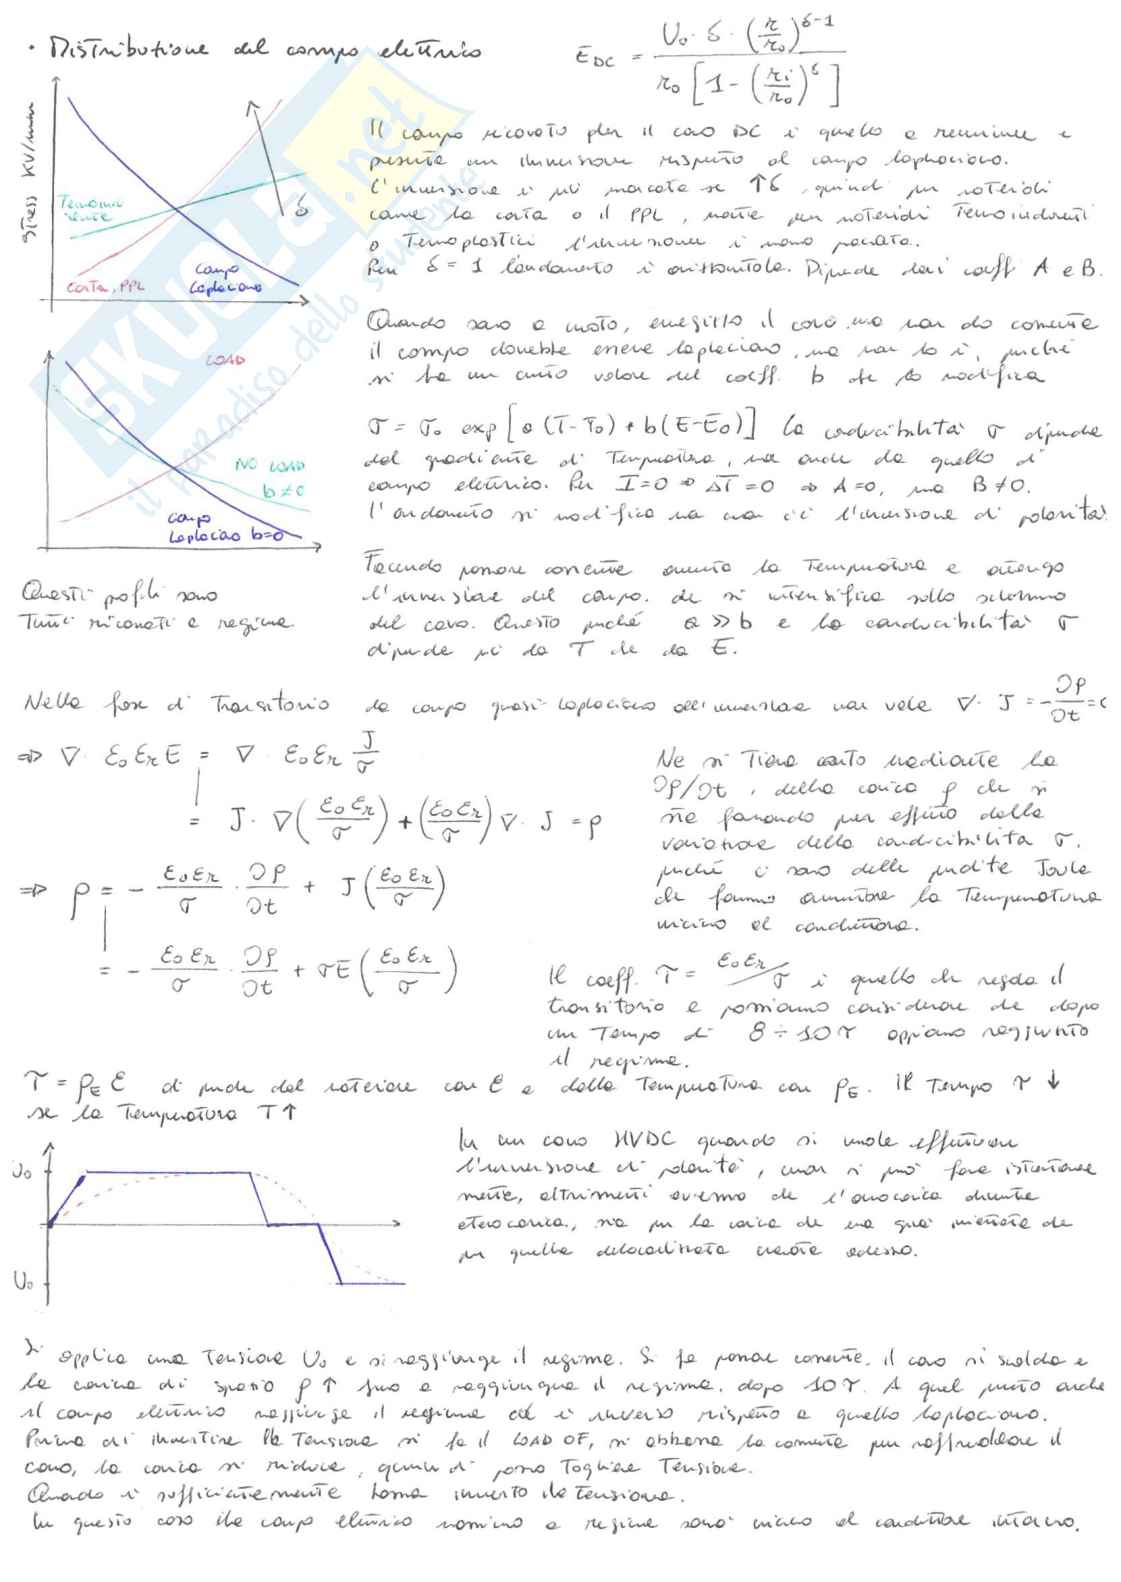 • Distribuzione del campo elettrico
E_DC = U₀·δ·(r/r₀)^(δ-1) / r₀[1-(ri/r₀)^δ]
Stress kV/mm
Termoindurente
carta, PPL
campo Laplaciano
δ
Il campo ricavato per il caso DC è quello a regime e
presenta un inversione rispetto al campo laplaciano.
L'inversione è più marcata se ↑δ, quindi per materiali
come la carta o il PPL, mentre per materiali Termoindurenti
o Termoplastici l'inversione è meno marcata.
Per δ = 1 l'andamento è orizzontale. Dipende dai coeff A e B.
LOAD
NO LOAD
b≠0
campo
Laplaciano b=0
Quando sono a vuoto, energizzo il cavo ma non do corrente
il campo dovrebbe essere laplaciano, ma non lo è, perché
si ha un certo valore del coeff. b che lo modifica
σ = σ₀ exp[a(T-T₀) + b(E-E₀)] la conducibilità σ dipende
dal gradiente di Temperatura, ma anche da quello di
campo elettrico. Per I=0 ⇒ ΔT=0 ⇒ A=0, ma B≠0.
l'andamento si modifica ma non c'è l'inversione di polarità.
Questi profili sono
Tutti ricavati a regime
Facendo passare corrente aumenta la Temperatura e ottengo
l'inversione del campo. che si intensifica sullo schermo
del cavo. Questo perché a ≫ b e la conducibilità σ
dipende più da T che da E.
Nella fase di Transitorio da campo quasi-laplaciano all'inversione non vale ∇· J = -∂ρ/∂t = 0
⇒ ∇· ε₀εrE = ∇· ε₀εr J/σ
= J· ∇(ε₀εr/σ) + (ε₀εr/σ) ∇· J = ρ
⇒ ρ = - ε₀εr/σ · ∂ρ/∂t + J(ε₀εr/σ)
= - ε₀εr/σ · ∂ρ/∂t + σE(ε₀εr/σ)
Ne si Tiene conto mediante la
∂ρ/∂t, della carica ρ che si
sta formando per effetto della
variazione della conducibilità σ.
perché ci sono delle perdite Joule
che fanno aumentare la Temperatura
vicino al conduttore.
Il coeff. τ = ε₀εr/σ è quello che regola il
transitorio e possiamo considerare che dopo
un Tempo di 8÷10τ abbiamo raggiunto
il regime.
τ = ρE ε dipende dal materiale con ε e dalla Temperatura con ρE. Il Tempo τ↓
se la Temperatura T↑
U₀
U₀
In un cavo HVDC quando si vuole effettuare
l'inversione di polarità, non si può fare istantanea
mente, altrimenti avremo che l'omocarica diventa
eterocarica, sia per la carica che era già iniettata che
per quella delocalizzata creata adesso.
Si applica una Tensione U₀ e si raggiunge il regime. Si fa passare corrente, il cavo si scalda e
la carica di spazio ρ↑ fino a raggiungere il regime, dopo 10τ. A quel punto anche
il campo elettrico raggiunge il regime ed è inverso rispetto a quello laplaciano.
Prima di invertire la Tensione si fa il LOAD OF, si abbassa la corrente per raffreddare il
cavo, la carica si riduce, quindi posso Togliere Tensione.
Quando è sufficientemente bassa inverto la tensione.
In questo caso il campo elettrico massimo a regime sarà vicino al conduttore interno.
SKUOLA.net
il paradiso dello studente